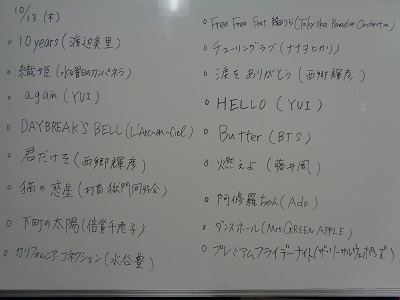 10/13 (木)
○ 10 years (渡辺美里)
○ 織姫 (水曜日のカンパネラ)
○ again (YUI)
○ DAYBREAK'S BELL (L'Arc~en~Ciel)
○ 君だけを (西郷輝彦)
○ 猫の惑星 (打首獄門同好会)
○ 下町の太陽 (倍賞千恵子)
○ カリフォルニアコネクション (水谷豊)
○ Free Free Free feat. (Tokyo Ska Paradise Orchestra)
○ チューリングラブ (ナナヲアカリ)
○ 涙をありがとう (西郷輝彦)
○ HELLO (YUI)
○ Butter (BTS)
○ 燃えよ (藤井風)
○ 阿修羅ちゃん (Ado)
○ ダンスホール (Mrs. GREEN APPLE)
○ プレミアムフライデーナイト (ザ・リーサルウェポンズ)